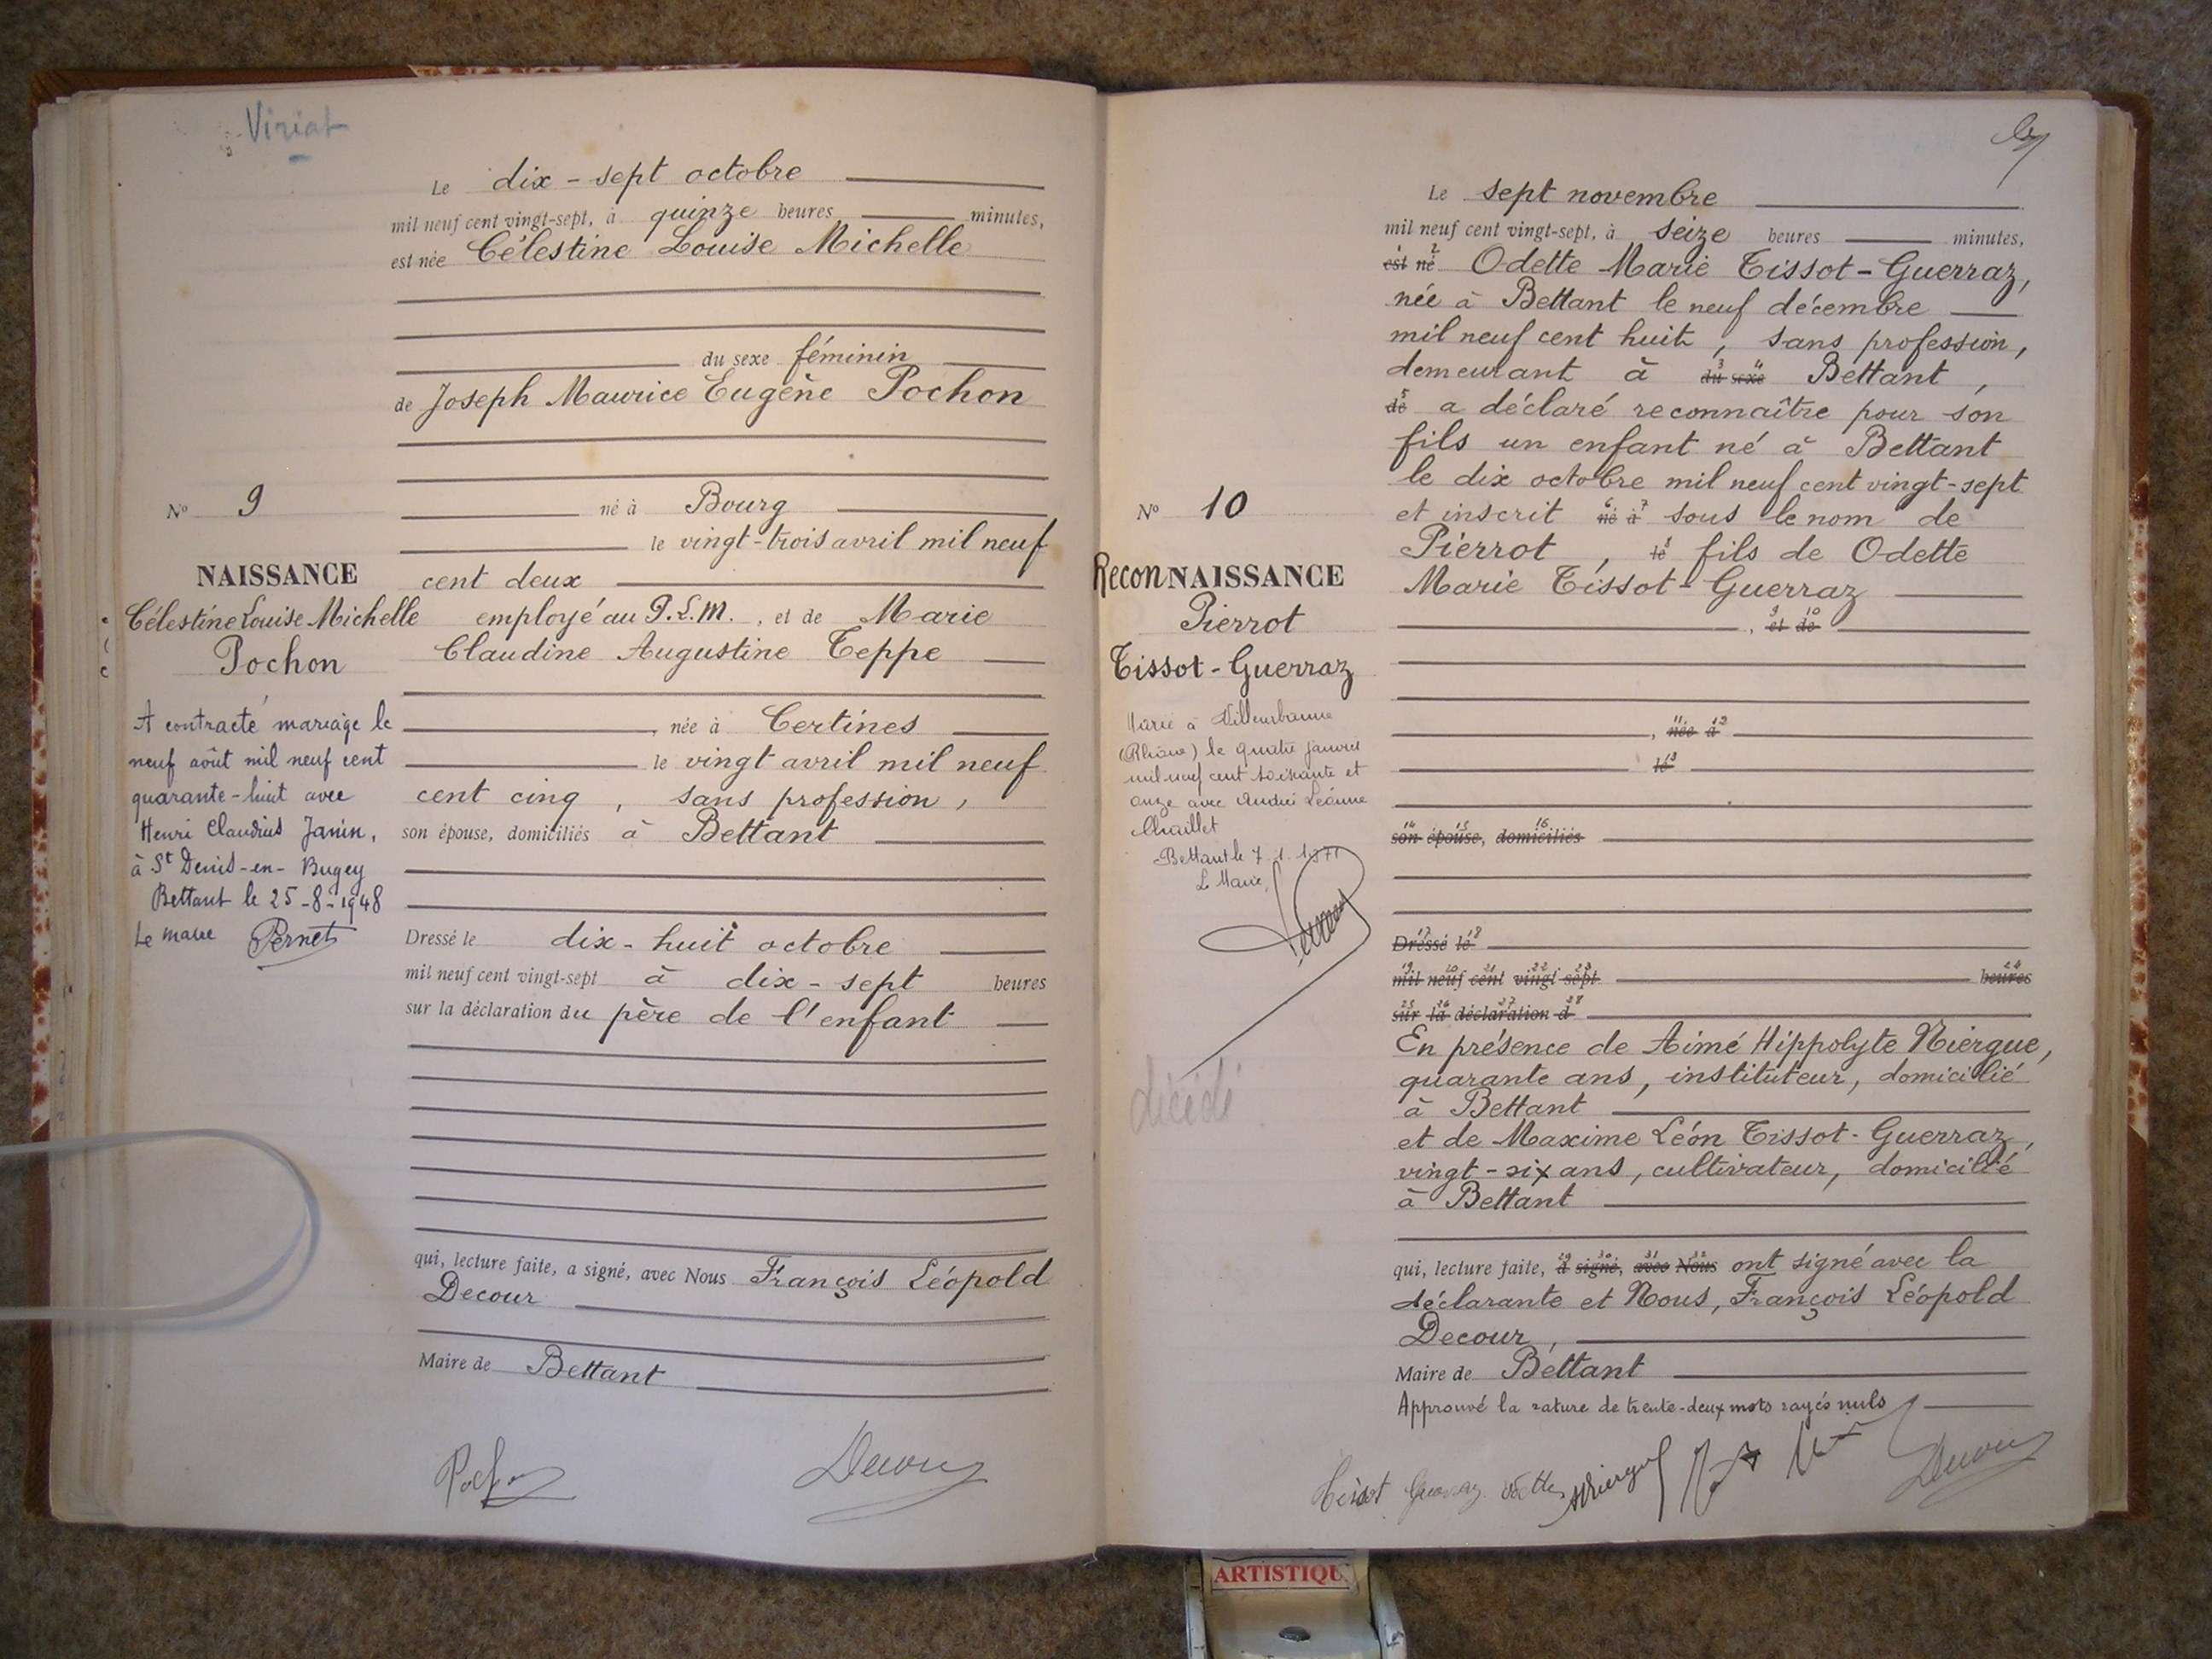 Viriat
Le dix-sept octobre
mil neuf cent vingt-sept, à quinze heures minutes,
est née Célestine Louise Michelle
du sexe féminin
de Joseph Maurice Eugène Pochon
né à Bourg
le vingt-trois avril mil neuf
cent deux
employé au P.L.M., et de Marie
Claudine Augustine Teppe
née à Certines
le vingt avril mil neuf
cent cinq, sans profession,
son épouse, domiciliés à Bettant
Dressé le dix-huit octobre
mil neuf cent vingt-sept à dix-sept heures
sur la déclaration du père de l'enfant
qui, lecture faite, a signé, avec Nous François Léopold
Decour
Maire de Bettant
Decour
No 9
NAISSANCE
Célestine Louise Michelle
Pochon
A contracté mariage le
neuf août mil neuf cent
quarante-huit avec
Henri Claudius Janin,
à St Denis-en-Bugey
Bettant le 25-8-1948
Le maire Pernet
No 10
ReconNAISSANCE
Pierrot
Tissot-Guerraz
Marié à Villeurbanne
(Rhône) le quatre janvier
mil neuf cent soixante et
onze avec Andrée Léonne
Chaillet
Bettant le 7.1.1971
Le Maire,
décédé
Le sept novembre
mil neuf cent vingt-sept, à seize heures minutes,
est né 2 Odette Marie Tissot-Guerraz,
née à Bettant le neuf décembre
mil neuf cent huit, sans profession,
demeurant à du 3 sexe 4 Bettant,
de 5 a déclaré reconnaître pour son
fils un enfant né à Bettant
le dix octobre mil neuf cent vingt-sept
et inscrit né 6 à 7 sous le nom de
Pierrot, le 8 fils de Odette
Marie Tissot-Guerraz
, et 9 de 10
, née 11 à 12
le 13
son 14 épouse 15, domiciliés 16
Dressé 17 le 18
mil 19 neuf 20 cent 21 vingt 22 sept 23 heures 24
sur 25 la 26 déclaration 27 d 28
En présence de Aimé Hippolyte Niergue,
quarante ans, instituteur, domicilié
à Bettant
et de Maxime Léon Tissot-Guerraz,
vingt-six ans, cultivateur, domicilié
à Bettant
qui, lecture faite, a 29 signé 30, avec 31 Nous 32 ont signé avec la
déclarante et Nous, François Léopold
Decour,
Maire de Bettant
Approuvé la rature de trente-deux mots rayés nuls
Tissot Guerraz Odette Niergue Decour
ARTISTIQU